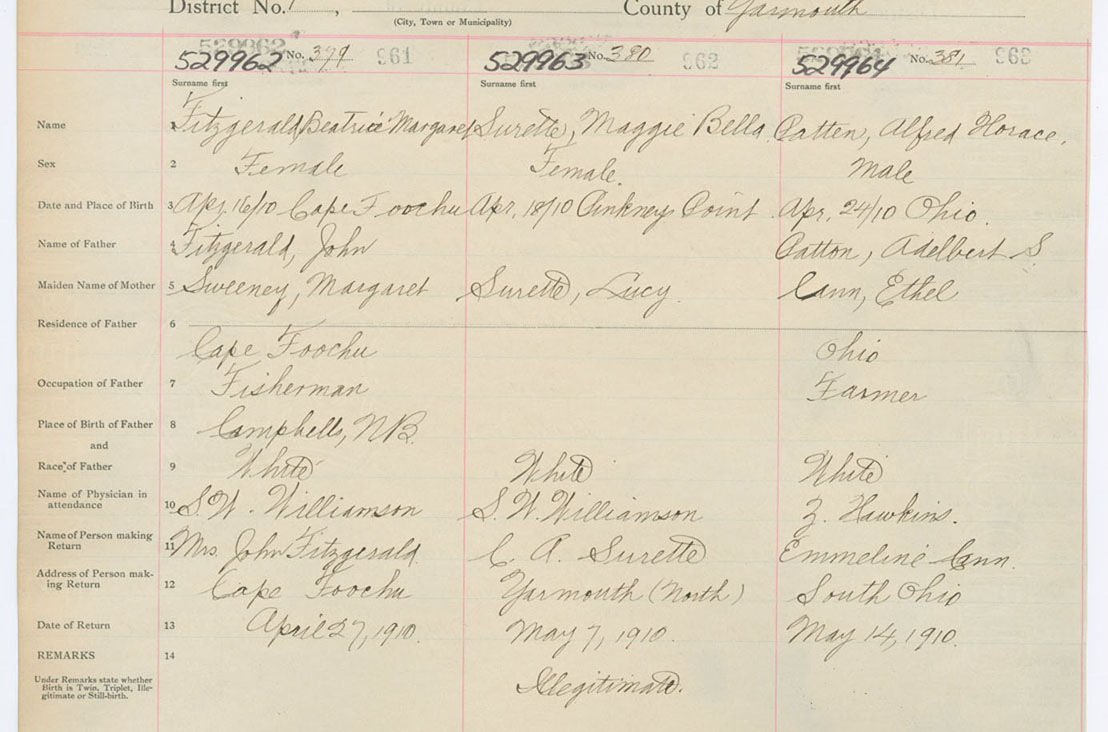 District No. 1, County of Yarmouth
(City, Town or Municipality)
529962 No. 379 961 529963 No. 380 962 529964 No. 381 963
Surname first Surname first Surname first
Name 1 Fitzgerald, Beatrice Margaret Surette, Maggie Bella Patten, Alfred Horace.
Sex 2 Female Female. Male
Date and Place of Birth 3 Apr. 16/10 Cape Foochu Apr. 18/10 Pinkneys Point Apr. 24/10 Ohio.
Name of Father 4 Fitzgerald, John Patton, Adelbert S
Maiden Name of Mother 5 Sweeney, Margaret Surette, Lucy. Cann, Ethel
Residence of Father 6
Cape Foochu Ohio
Occupation of Father 7 Fisherman Farmer
Place of Birth of Father 8 Campbells, N.B.
and
Race of Father 9 White White White
Name of Physician in
attendance 10 S.W. Williamson S.W. Williamson Z. Hawkins.
Name of Person making
Return 11 Mrs. John Fitzgerald. C A. Surette Emmeline Cann.
Address of Person mak-
ing Return 12 Cape Foochu Yarmouth (North) South Ohio
Date of Return 13 April 27, 1910. May 7, 1910. May 14, 1910.
REMARKS 14
Under Remarks state whether
Birth is Twin, Triplet, Ille-
gitimate or Still-birth. Illegitimate.